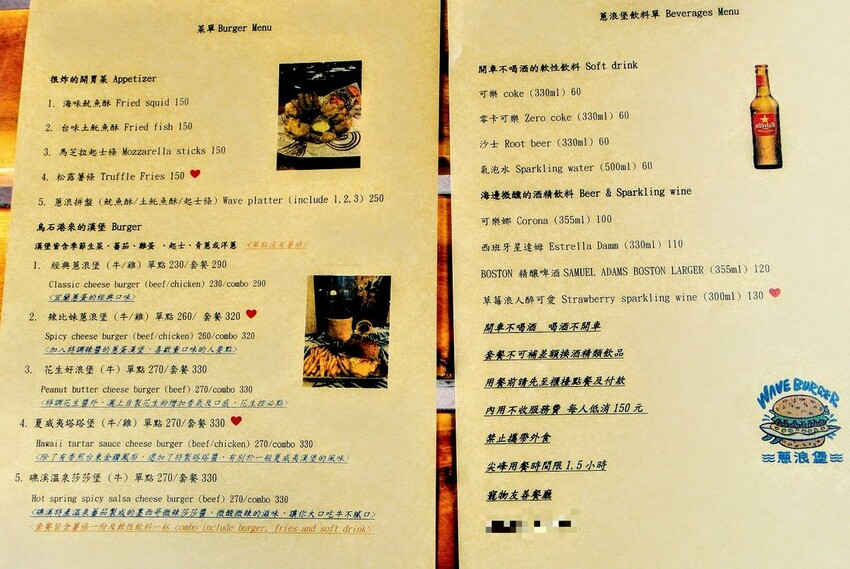 菜單 Burger Menu
很炸的開胃菜 Appetizer
1. 海味魷魚酥 Fried squid 150
2. 台味土魠魚酥 Fried fish 150
3. 馬芝拉起士條 Mozzarella sticks 150
4. 松露薯條 Truffle Fries 150
5. 蔥浪拼盤 (魷魚酥/土魠魚酥/起士條) Wave platter (include 1,2,3) 250
烏石港來的漢堡 Burger
漢堡皆含季節生菜、蕃茄、雞蛋、起士、青蔥或洋蔥 <單點沒有薯條>
1. 經典蔥浪堡 (牛/雞) 單點 230/套餐 290
Classic cheese burger (beef/chicken) 230/combo 290
<宜蘭蔥蛋的經典口味>
2. 辣比妹蔥浪堡 (牛/雞) 單點 260/ 套餐 320
Spicy cheese burger (beef/chicken) 260/combo 320
<加入特調辣醬的蔥蛋漢堡，喜歡重口味的人要點>
3. 花生好浪堡 (牛) 單點 270/套餐 330
Peanut butter cheese burger (beef) 270/combo 330
<特調花生醬外，灑上自製花生粉增加香氣及口感，花生控必點>
4. 夏威夷塔塔堡 (牛/雞) 單點 270/套餐 330
Hawaii tartar sauce cheese burger (beef/chicken) 270/combo 330
<除了有香煎台東金鑽鳳梨，還加了特製塔塔醬，有別於一般夏威夷漢堡的風味>
5. 礁溪溫泉莎莎堡 (牛) 單點 270/套餐 330
Hot spring spicy salsa cheese burger (beef) 270/combo 330
<礁溪特產溫泉蕃茄製成的墨西哥微辣莎莎醬，微酸微辣的滋味，讓你大口吃牛不膩口>
<套餐皆含薯條一份及軟性飲料一杯 combo include burger, fries and soft drink>
蔥浪堡飲料單 Beverages Menu
開車不喝酒的軟性飲料 Soft drink
可樂 coke (330ml) 60
零卡可樂 Zero coke (330ml) 60
沙士 Root beer (330ml) 60
氣泡水 Sparkling water (500ml) 60
海邊微醺的酒精飲料 Beer & Sparkling wine
可樂娜 Corona (355ml) 100
西班牙星達姆 Estrella Damm (330ml) 110
BOSTON 精釀啤酒 SAMUEL ADAMS BOSTON LARGER (355ml) 120
草莓浪人醉可愛 Strawberry sparkling wine (300ml) 130
開車不喝酒 喝酒不開車
套餐不可補差額換酒精類飲品
用餐前請先至櫃檯點餐及付款
內用不收服務費 每人低消 150 元
禁止攜帶外食
尖峰用餐時間限 1.5 小時
寵物友善餐廳
WAVE BURGER
蔥浪堡